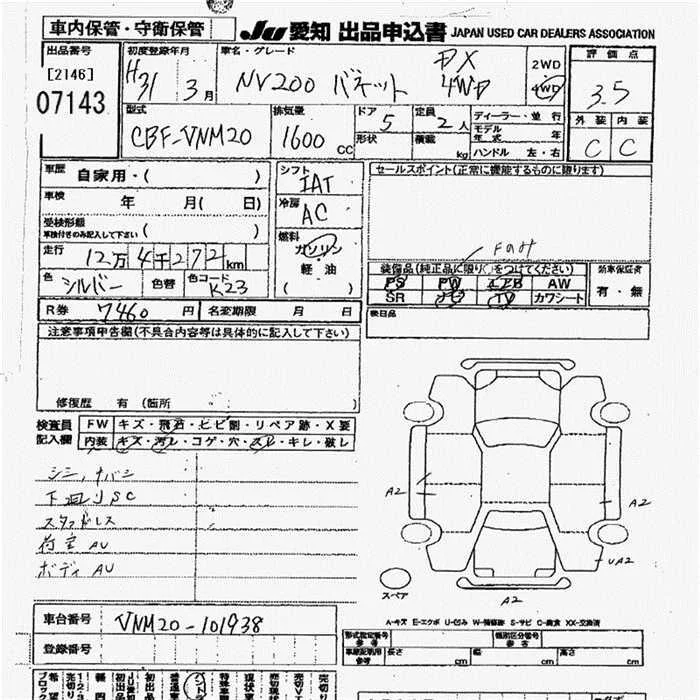 車内保管・守衛保管
JU 愛知 出品申込書 JAPAN USED CAR DEALERS ASSOCIATION
出品番号
[2146]
07143
初度登録年月
H31 3月
車名・グレード
NV200 バネット DX 4WD
2WD
4WD
評価点
3.5
外装 内装
C C
型式
CBF-VNM20
排気量
1600 cc
ドア 5
形状
定員 2人
積載 kg
ディーラー・並行
モデル年式 年
ハンドル 左・右
車歴 自家用・( )
車検 年 月( 日)
受検形態
車検付きのみ記入して下さい ( )
走行 12万4千272km
色 シルバー 色替 色コード K23
シフト IAT
冷房 AC
燃料
ガソリン
軽油
( )
セールスポイント(正常に機能するものに限ります)
装備品(純正品に限り○をつけてください)
PS PW エアB AW
SR ナビ TV カワシート
新車保証書
有・無
後日品
R券 7460 円 名変期限 月 日
注意事項申告欄(不具合内容等は具体的に記入して下さい)
修復歴 有 (箇所
検査員記入欄
FW キズ・飛石・ヒビ割・リペア跡・X要
内装 キズ・汚レ・コゲ・穴・スレ・キレ・破レ
下回りSC
スタッドレス
荷室AU
ボディAU
A2
A2
UA2
A2
スペア
A-キズ E-エクボ U-凹み W-補修跡 S-サビ C-腐食 XX-交換済
車台番号 VNM20-101938
登録番号
型式指定番号
参考
類別区分番号
参考
車検証記載
参考
長さ cm 幅 cm 高さ cm